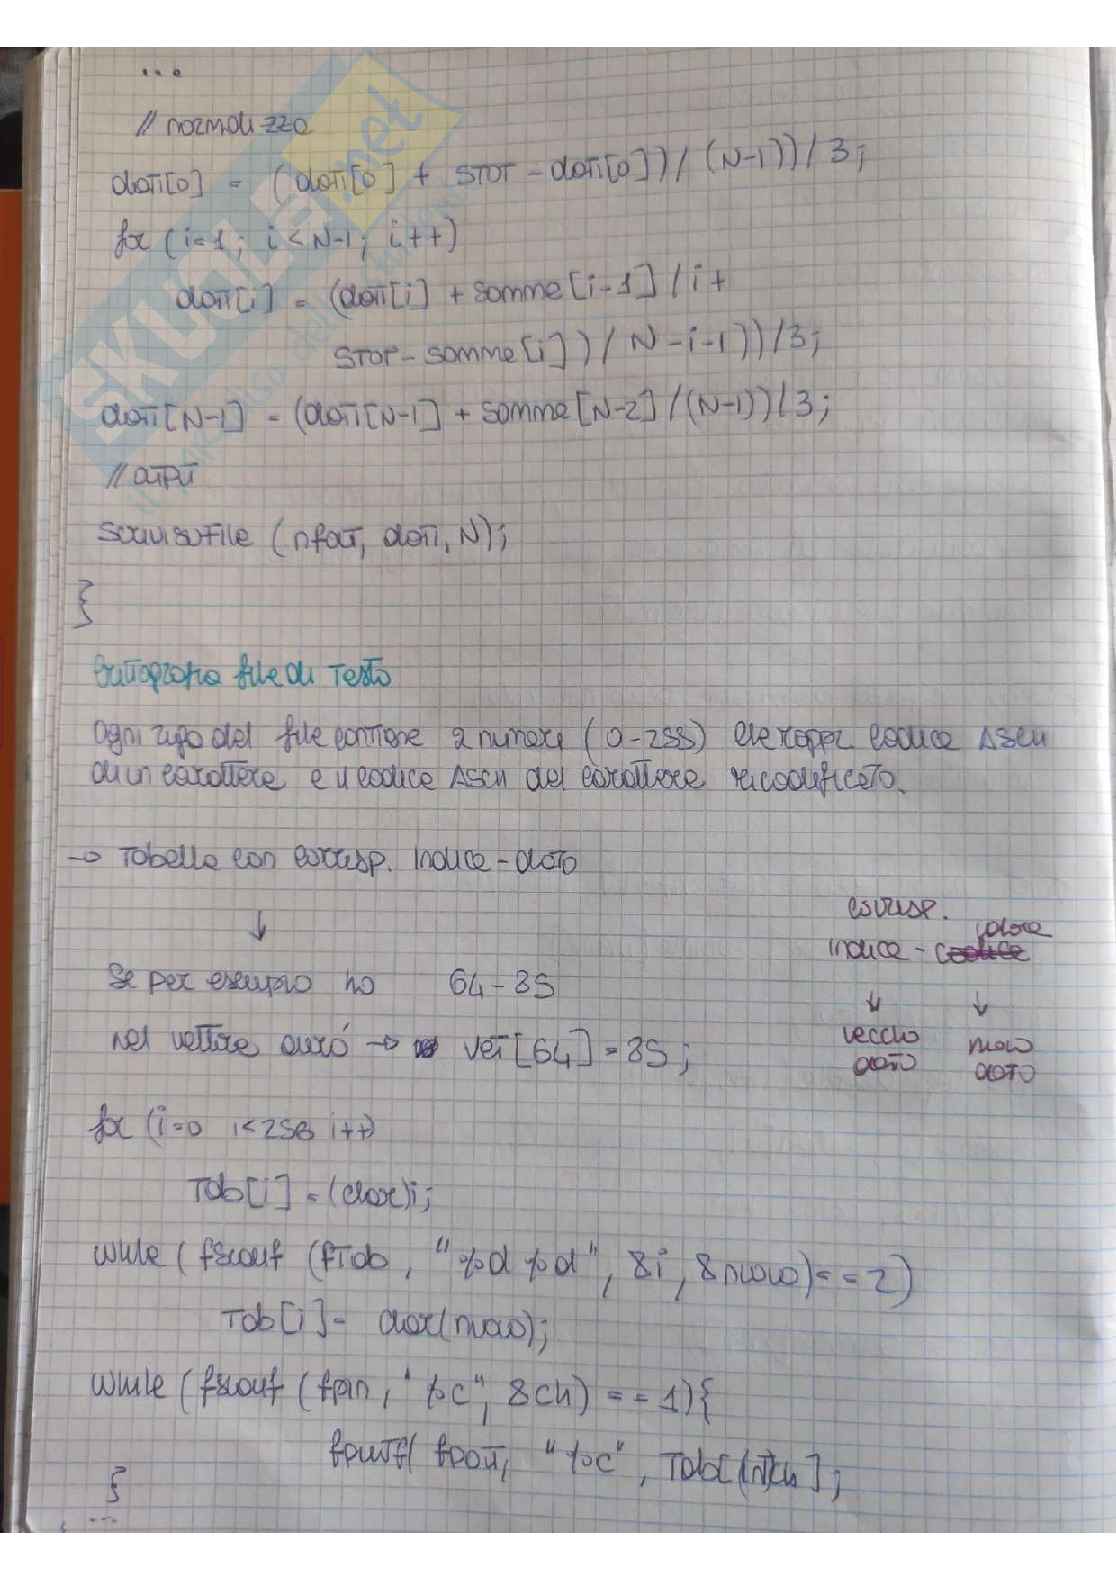 ...
// normalizzo
dati[0] = (dati[0] + STOT - dati[0]) / (N-1)) / 3;
for (i=1; i<N-1; i++)
dati[i] = (dati[i] + somme[i-1] / i +
STOT - somme[i]) / N-i-1)) / 3;
dati[N-1] = (dati[N-1] + somme[N-2] / (N-1)) / 3;
// output
scrivisufile (nfout, dati, N);
}
Crittografia file di testo
Ogni riga del file contiene 2 numeri (0-255) che rappr. codice ASCII
di un carattere e il codice ASCII del carattere ricodificato.
→ Tabella con corrisp. indice - dato
↓
corrisp.
valore
indice -
Se per esempio ho 64-35
↓ ↓
nel vettore avrò → vet[64] = 35;
vecchio nuovo
dato dato
for (i=0 i<256 i++)
Tab[i] = (char)i;
while (fscanf (fTab, "%d %d", &i, &nuovo) == 2)
Tab[i] = char(nuovo);
while (fscanf (fpin, "%c", &ch) == 1){
fprintf( fpout, "%c", Tab[(int)ch];
}
...
SKUOLA.net